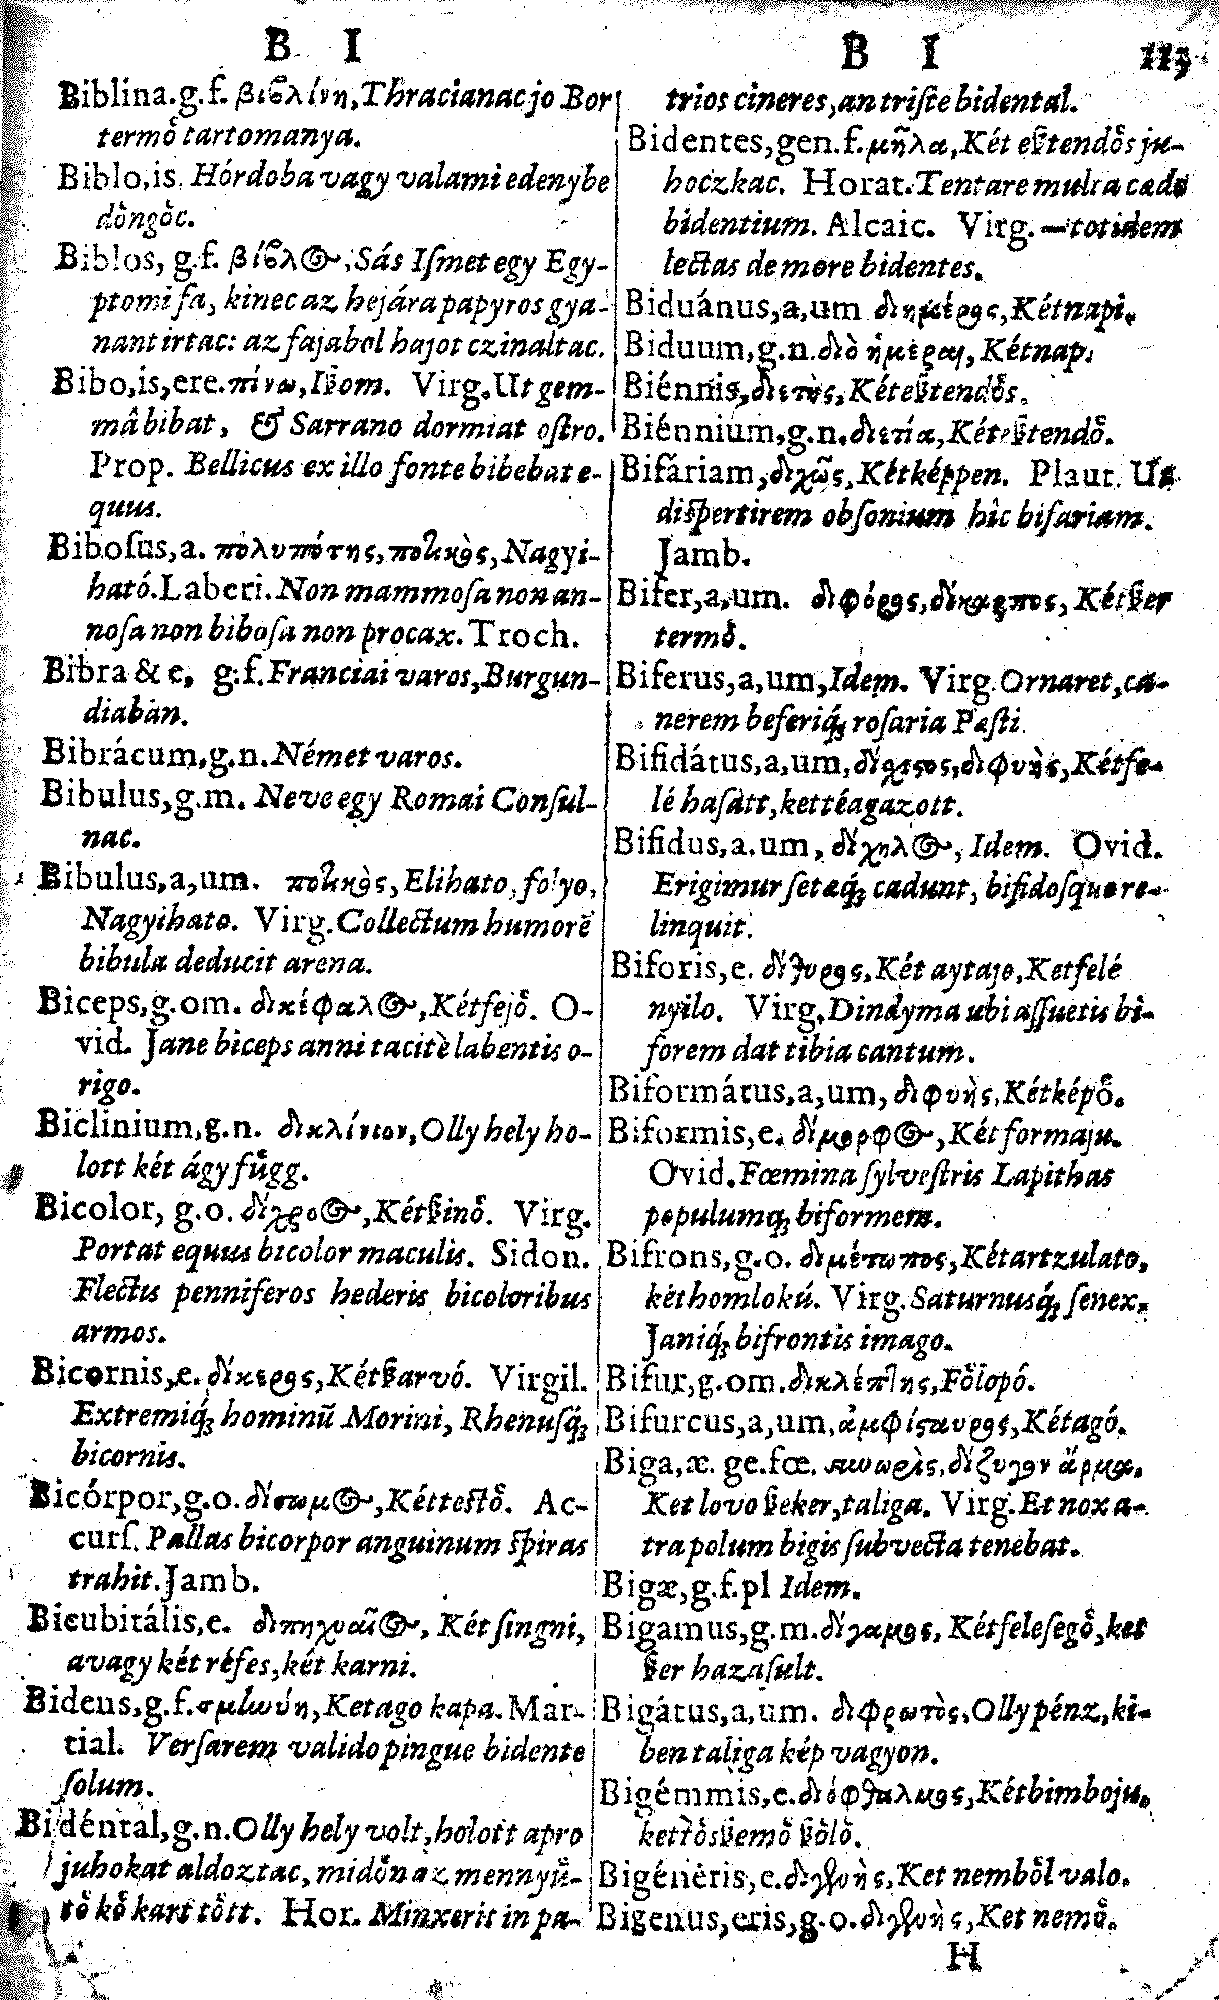 B I
Biblina.g.f. βιβλίνη, Thracianac jo Bor
termő tartomanya.
Biblo,is. Hórdoba vagy valami edenybe
dőngőc.
Biblos, g.f. βίβλος, Sás Iſmet egy Egy-
ptomi fa, kinec az hejára papyros gya-
nant irtac: az fajabol hajot czinaltac.
Bibo,is,ere. πίνω, Iſzom. Virg. Ut gem-
mâ bibat, & Sarrano dormiat oſtro.
Prop. Bellicus ex illo fonte bibebat e-
quus.
Biboſus,a. πολυπότης, ποτικὸς, Nagyi-
ható. Laberi. Non mammoſa non an-
noſa non biboſa non procax. Troch.
Bibra & e, g.f. Franciai varos, Burgun-
diaban.
Bibrácum,g.n. Német varos.
Bibulus,g.m. Neve egy Romai Conſul-
nac.
Bibulus,a,um. ποτικὸς, Elihato, folyo,
Nagyihato. Virg. Collectum humorē
bibula deducit arena.
Biceps,g.om. δικέφαλος, Kétfejő. O-
vid. Jane biceps anni tacitè labentis o-
rigo.
Biclinium,g.n. δικλίνιον, Olly hely ho-
lott két ágy fűgg.
Bicolor, g.o. δίχροος, Kétſzinő. Virg.
Portat equus bicolor maculis. Sidon.
Flectis penniferos hederis bicoloribus
armos.
Bicornis,e. δίκερως, Kétſzarvó. Virgil.
Extremiq́; hominū Morini, Rhenuſq́;
bicornis.
Bicórpor,g.o. δίσωμος, Kéttestő. Ac-
curſ. Pallas bicorpor anguinum ſpiras
trahit. Jamb.
Bicubitális,e. διπηχυαῖος, Két ſingni,
avagy két réfes, két karni.
Bidens,g.f. σμινύη, Ketago kapa. Mar-
tial. Verſarem valido pingue bidente
ſolum.
Bidéntal,g.n. Olly hely volt, holott apro
juhokat aldoztac, midőn az mennyű-
tő kő kart tőtt. Hor. Minxerit in pa-
B I 113
trios cineres, an triſte bidental.
Bidentes,gen.f. μῆλα, Két eſztendős ju-
hoczkac. Horat. Tentare multa cæde
bidentium. Alcaic. Virg. —totidem
lectas de more bidentes.
Biduánus,a,um διημέρος, Kétnapi.
Biduum,g.n. δύο ἡμέραι, Kétnap.
Biénnis, διετὴς, Kéteſztendős.
Biénnium,g.n. διετία, Kéteſztendő.
Bifáriam, διχῶς, Kétképpen. Plaut. Ut
diſpertirem obſonium hîc bifariam.
Jamb.
Bifer,a,um. διφόρος, δίκαρπος, Kétſzer
termő.
Biferus,a,um, Idem. Virg. Ornaret, ca-
nerem biferiq́; roſaria Pæſti.
Bifidátus,a,um, δίχροος, διφυὴς, Kétfe-
lé haſatt, kettéagazott.
Bifidus,a.um, δίχηλος, Idem. Ovid.
Erigimur ſetæq́; cadunt, bifidoſque re-
linquit.
Biforis,e. δίθυρος, Két aytajo, Ketfelé
nyilo. Virg. Dindyma ubi aſſuetis bi-
forem dat tibia cantum.
Biformátus,a,um, διφυὴς, Kétképő.
Biformis,e. δίμορφος, Két formaju.
Ovid. Fœmina ſylveſtris Lapithas
populumq́; biformem.
Bifrons,g.o. διμέτωπος, Kétartzulato,
két homlokú. Virg. Saturnusq́; ſenex,
Janiq́; bifrontis imago.
Bifur,g.om. δικλέπτης, Főlopó.
Bifurcus,a,um, ἀμφίσταυρος, Kétagó.
Biga,æ. ge.fœ. συνωρὶς, δίζυγον ἅρμα.
Ket lovo ſzeker, taliga. Virg. Et nox a-
tra polum bigis ſubvecta tenebat.
Bigæ,g.f.pl Idem.
Bigamus,g.m. δίγαμος, Kétfeleſegő, ket
ſzer hazaſult.
Bigátus,a,um. διφρωτὸς, Olly pénz, ki-
ben taliga kép vagyon.
Bigémmis,e. διόφθαλμος, Kétbimboju,
kettősſzemő ſzőlő.
Bigéneris,e. διγενὴς, Ket nemből valo.
Bigenus,eris,g.o. διγενὴς, Ket nemő.
H